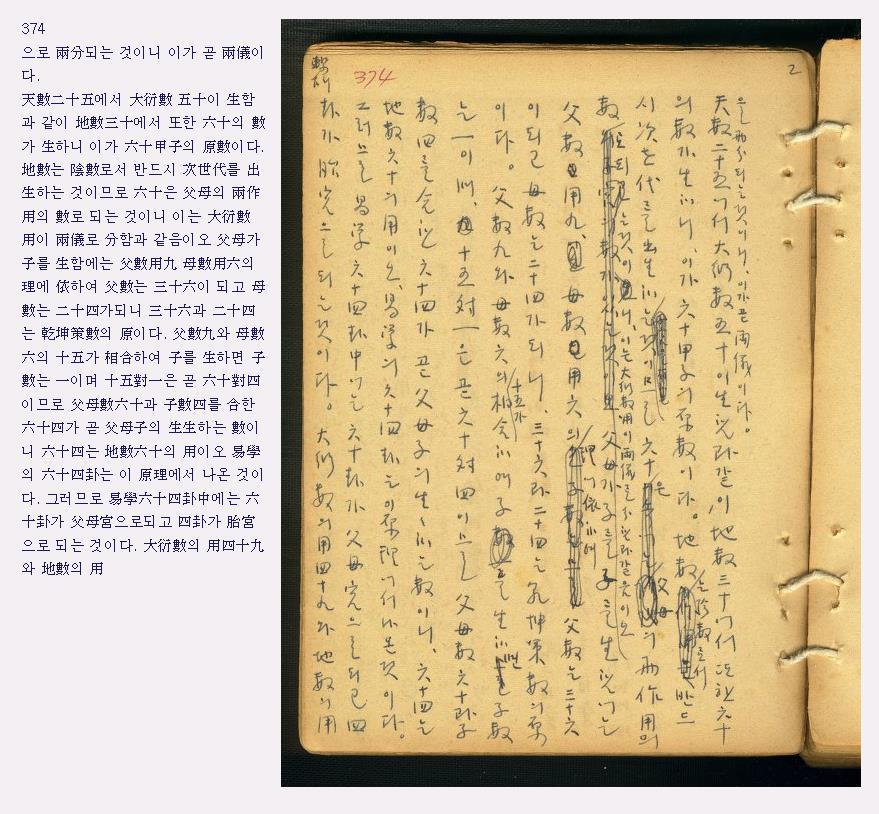 374
으로 兩分되는 것이니 이가 곧 兩儀이
다.
天數二十五에서 大衍數 五十이 生함
과 같이 地數三十에서 또한 六十의 數
가 生하니 이가 六十甲子의 原數이다.
地數는 陰數로서 반드시 次世代를 出
生하는 것이므로 六十은 父母의 兩作
用의 數로 되는 것이니 이는 大衍數
用이 兩儀로 分함과 같음이오 父母가
子를 生함에는 父數用九 母數用六의
理에 依하여 父數는 三十六이 되고 母
數는 二十四가되니 三十六과 二十四
는 乾坤策數의 原이다. 父數九와 母數
六의 十五가 相合하여 子를 生하면 子
數는 一이며 十五對一은 곧 六十對四
이므로 父母數六十과 子數四를 合한
六十四가 곧 父母子의 生生하는 數이
니 六十四는 地數六十의 用이오 易學
의 六十四卦는 이 原理에서 나온 것이
다. 그러므로 易學六十四卦中에는 六
十卦가 父母宮으로되고 四卦가 胎宮
으로 되는 것이다. 大衍數의 用四十九
와 地數의 用
374
2
으로 兩分되는것이니, 이가곧 兩儀이다.
天數二十五에서 大衍數五十이生함과같이 地數三十에서 또한 六十
의數가生하니, 이가 六十甲子의 原數이다. 地數는陰數로서 반드
시次世代를出生하는것이므로 六十은 父母의 兩作用의
數로되는것이니, 이는大衍數用이兩儀로分함과같음이오 父母가子를生함에는
父數用九, 母數用六의 理에依하여 父數는三十六
이되고 母數는二十四가되니, 三十六과二十四는 乾坤策數의原
이다. 父數九와 母數六의 十五가 相合하여 子를生하면 子數
는一이며, 十五對一은 곧 六十對四이므로 父母數六十과子
數四를合한 六十四가 곧 父母子의生生하는數이니, 六十四는
地數六十의用이오, 易學의六十四卦는 이原理에서나온것이다.
그러므로 易學六十四卦中에는 六十卦가 父母宮으로되고 四
卦가 胎宮으로되는것이다. 大衍數의用四十九와 地數의用